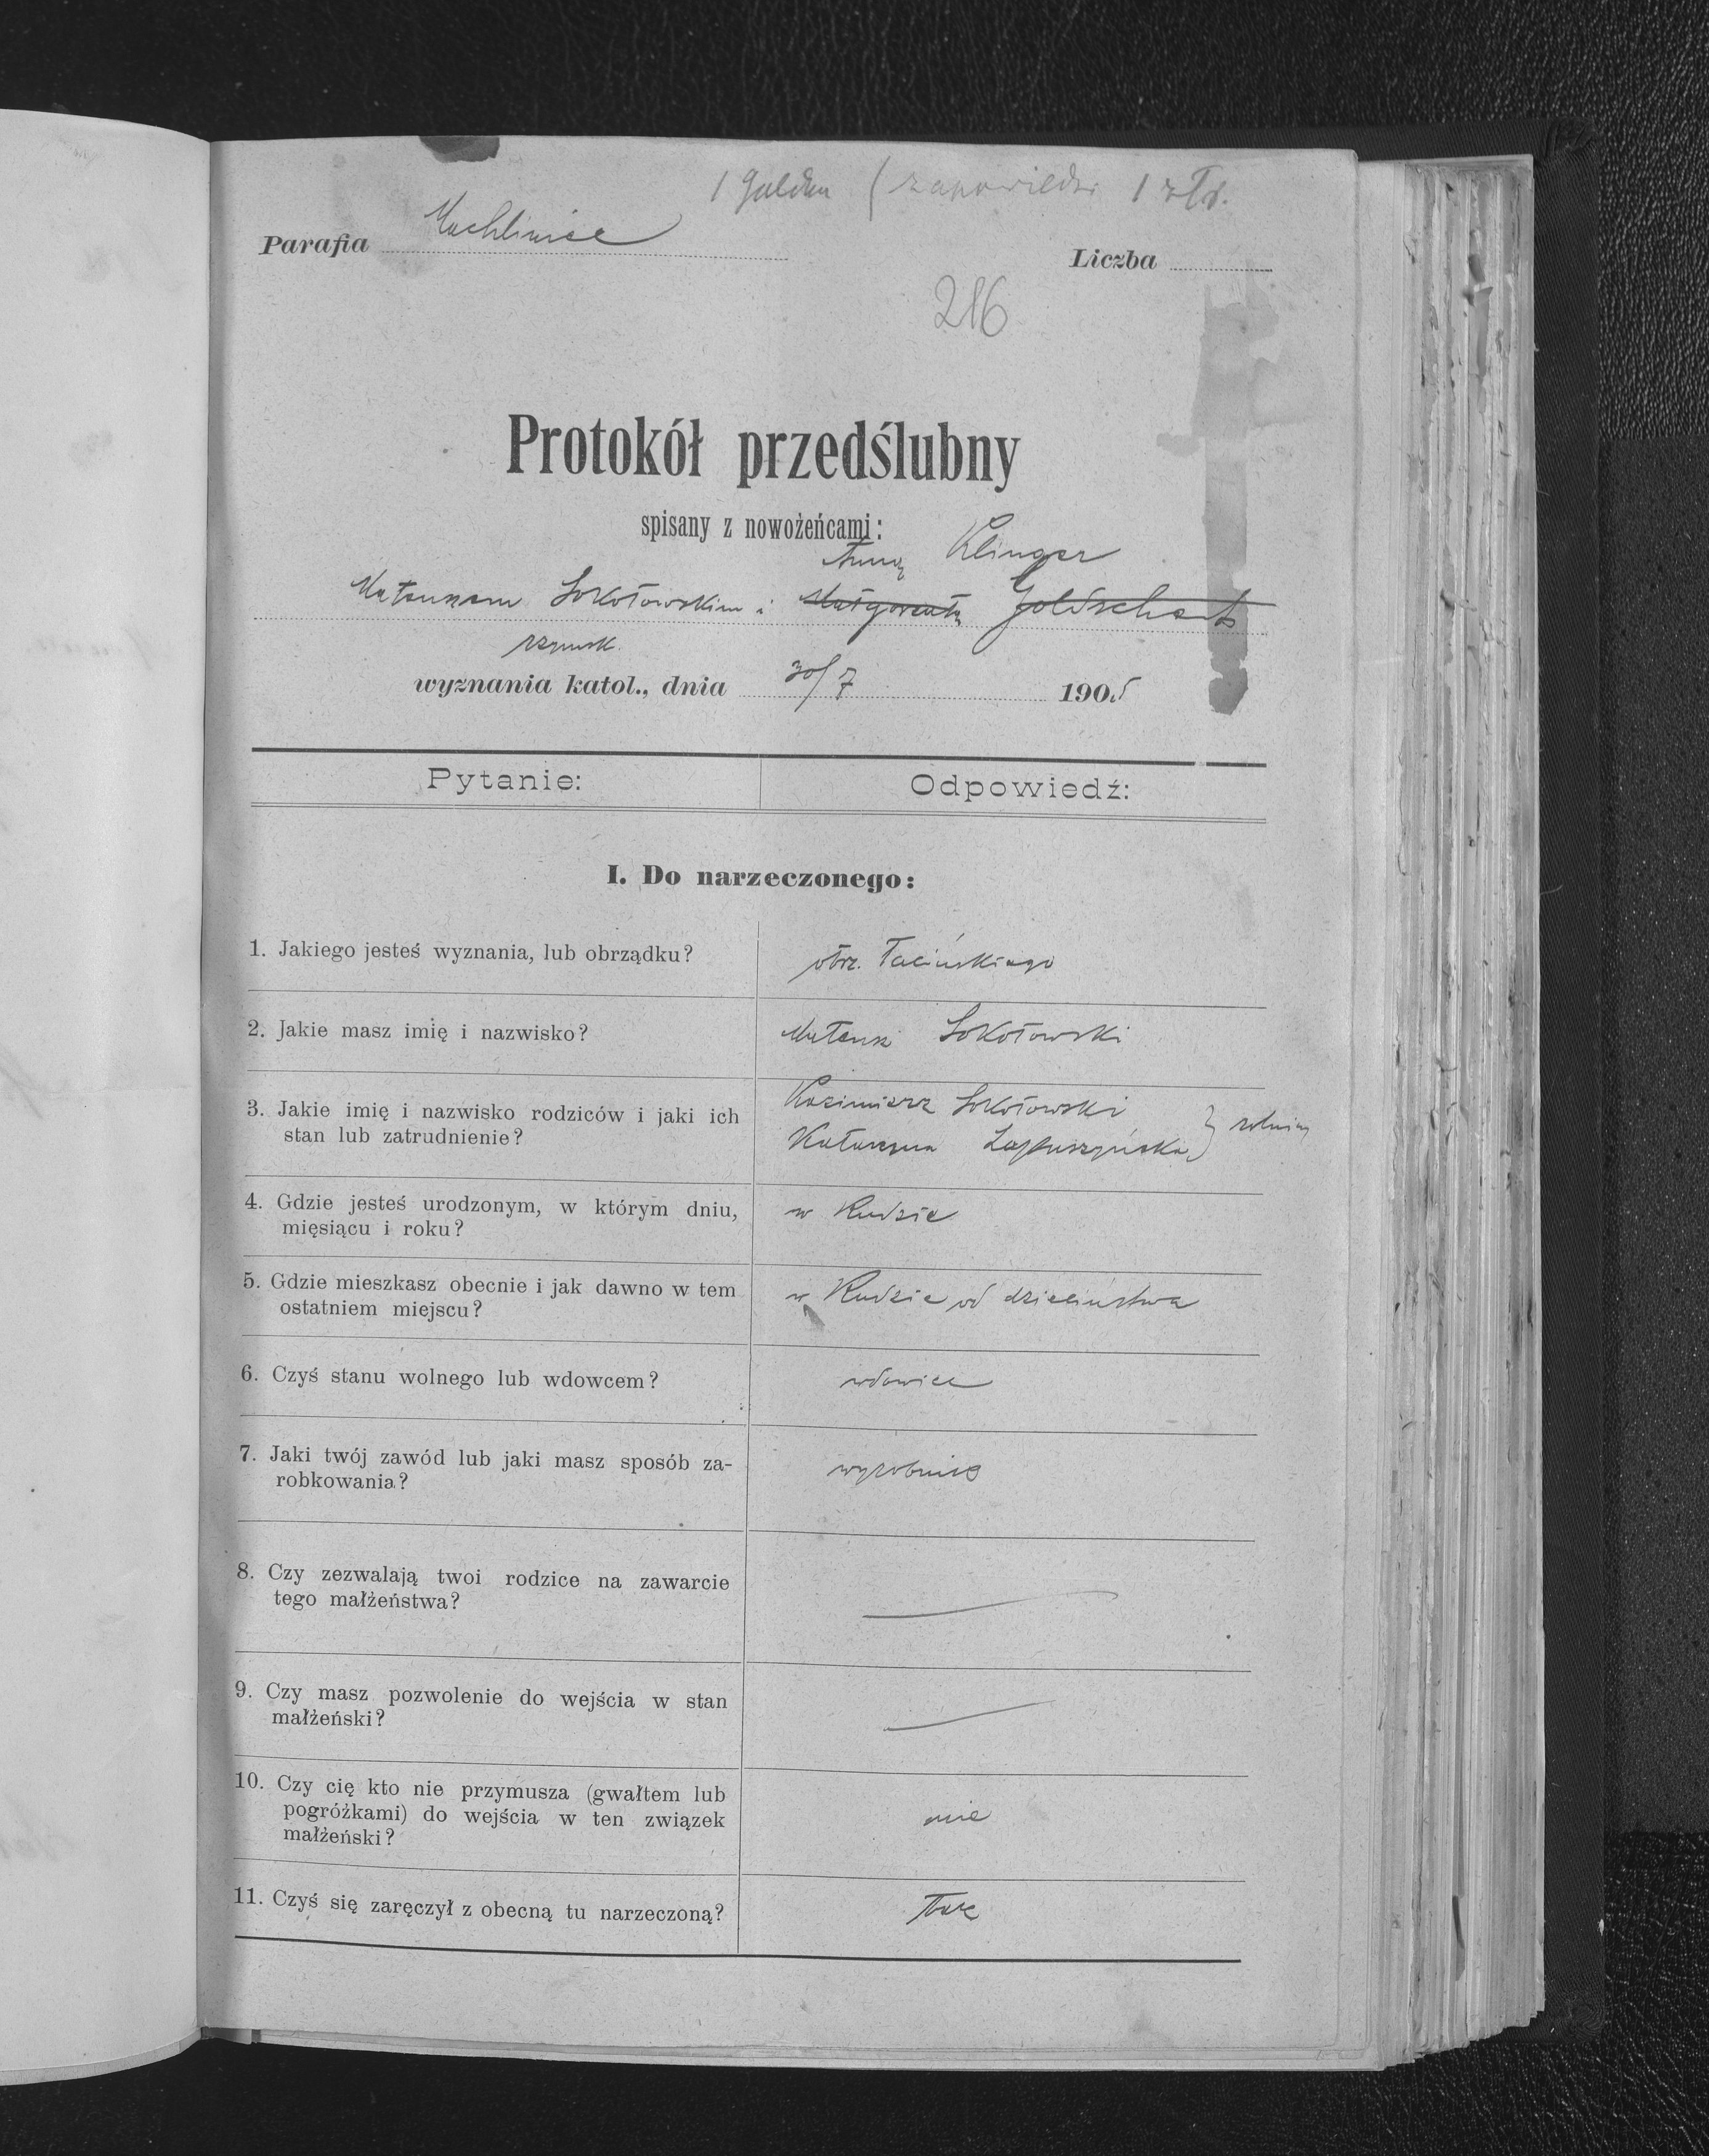 1 Gulden ( zapowiedzi 1 złr.
Parafia Machlinice
Liczba
216
Protokół przedślubny
spisany z nowożeńcami:
Anną Klinger
Mateuszem Sokołowskim i Małgorzatą Goldschect
rzymsk.
wyznania katol., dnia 30/7 1905
Pytanie: Odpowiedź:
I. Do narzeczonego:
1. Jakiego jesteś wyznania, lub obrządku? obrz. łacińskiego
2. Jakie masz imię i nazwisko? Mateusz Sokołowski
3. Jakie imię i nazwisko rodziców i jaki ich Kazimierz Sokołowski
stan lub zatrudnienie? Katarzyna Łapuszyńska } rolnicy
4. Gdzie jesteś urodzonym, w którym dniu, w Rudzie
mięsiącu i roku?
5. Gdzie mieszkasz obecnie i jak dawno w tem w Rudzie od dzieciństwa
ostatniem miejscu?
6. Czyś stanu wolnego lub wdowcem? wdowiec
7. Jaki twój zawód lub jaki masz sposób za- wyrobnik
robkowania?
8. Czy zezwalają twoi rodzice na zawarcie
tego małżeństwa?
9. Czy masz pozwolenie do wejścia w stan
małżeński?
10. Czy cię kto nie przymusza (gwałtem lub
pogróżkami) do wejścia w ten związek nie
małżeński?
11. Czyś się zaręczył z obecną tu narzeczoną? Tak